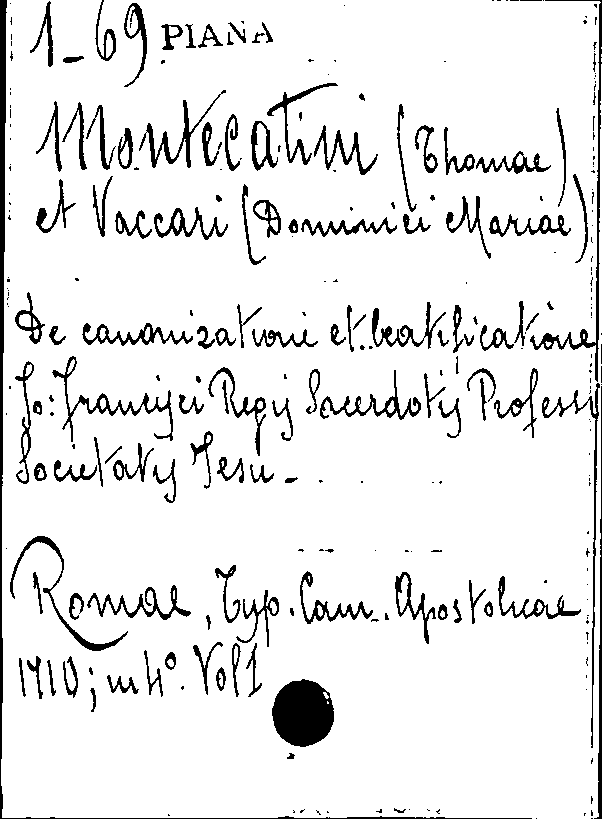 1-69 PIANA
Montecatini (Thomae)
et Vaccari (Dominici Mariae)
De canonizatione et beatificatione
Jo: Francisci Regis Sacerdotis Professi
Societatis Jesu -
Romae, Typ. Cam. Apostolicae
1710; in 4°. Vol 1